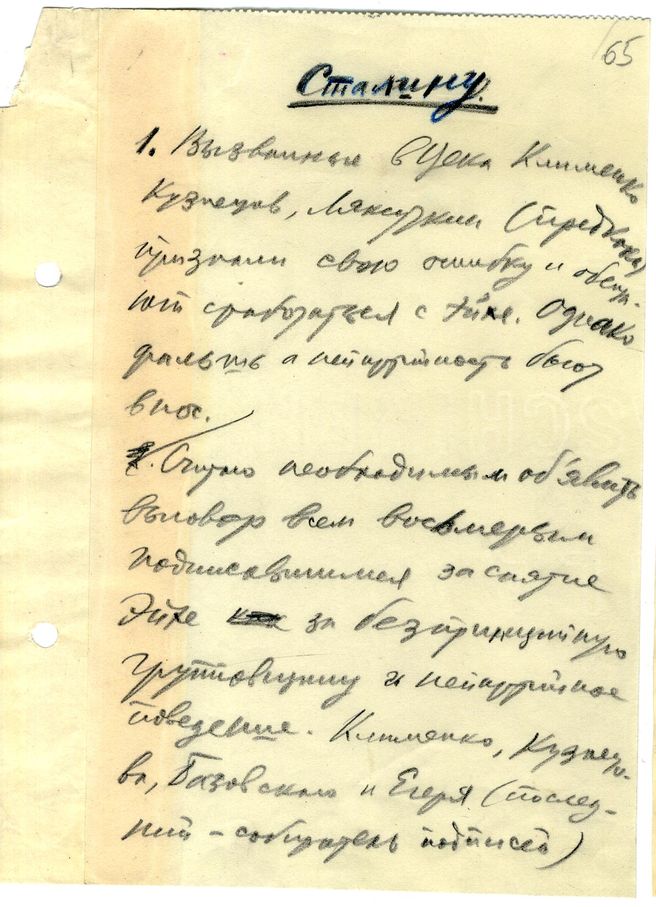 65
Сталину.
1. Вызванные в Цека Клименко
Кузнецов, Ляксуткин (предККК)
признали свою ошибку и обещают
сработаться с Эйхе. Однако
фальшь и непартийность бьют
в нос.
2. Считаю необходимым об'явить
выговор всем восьмерым
подписавшимся за снятие
Эйхе за безпринципную
групповщину и непартийное
поведение. Клименко, Кузнецо-
ва, Базовского и Егеря (послед-
ний – собиратель подписей)